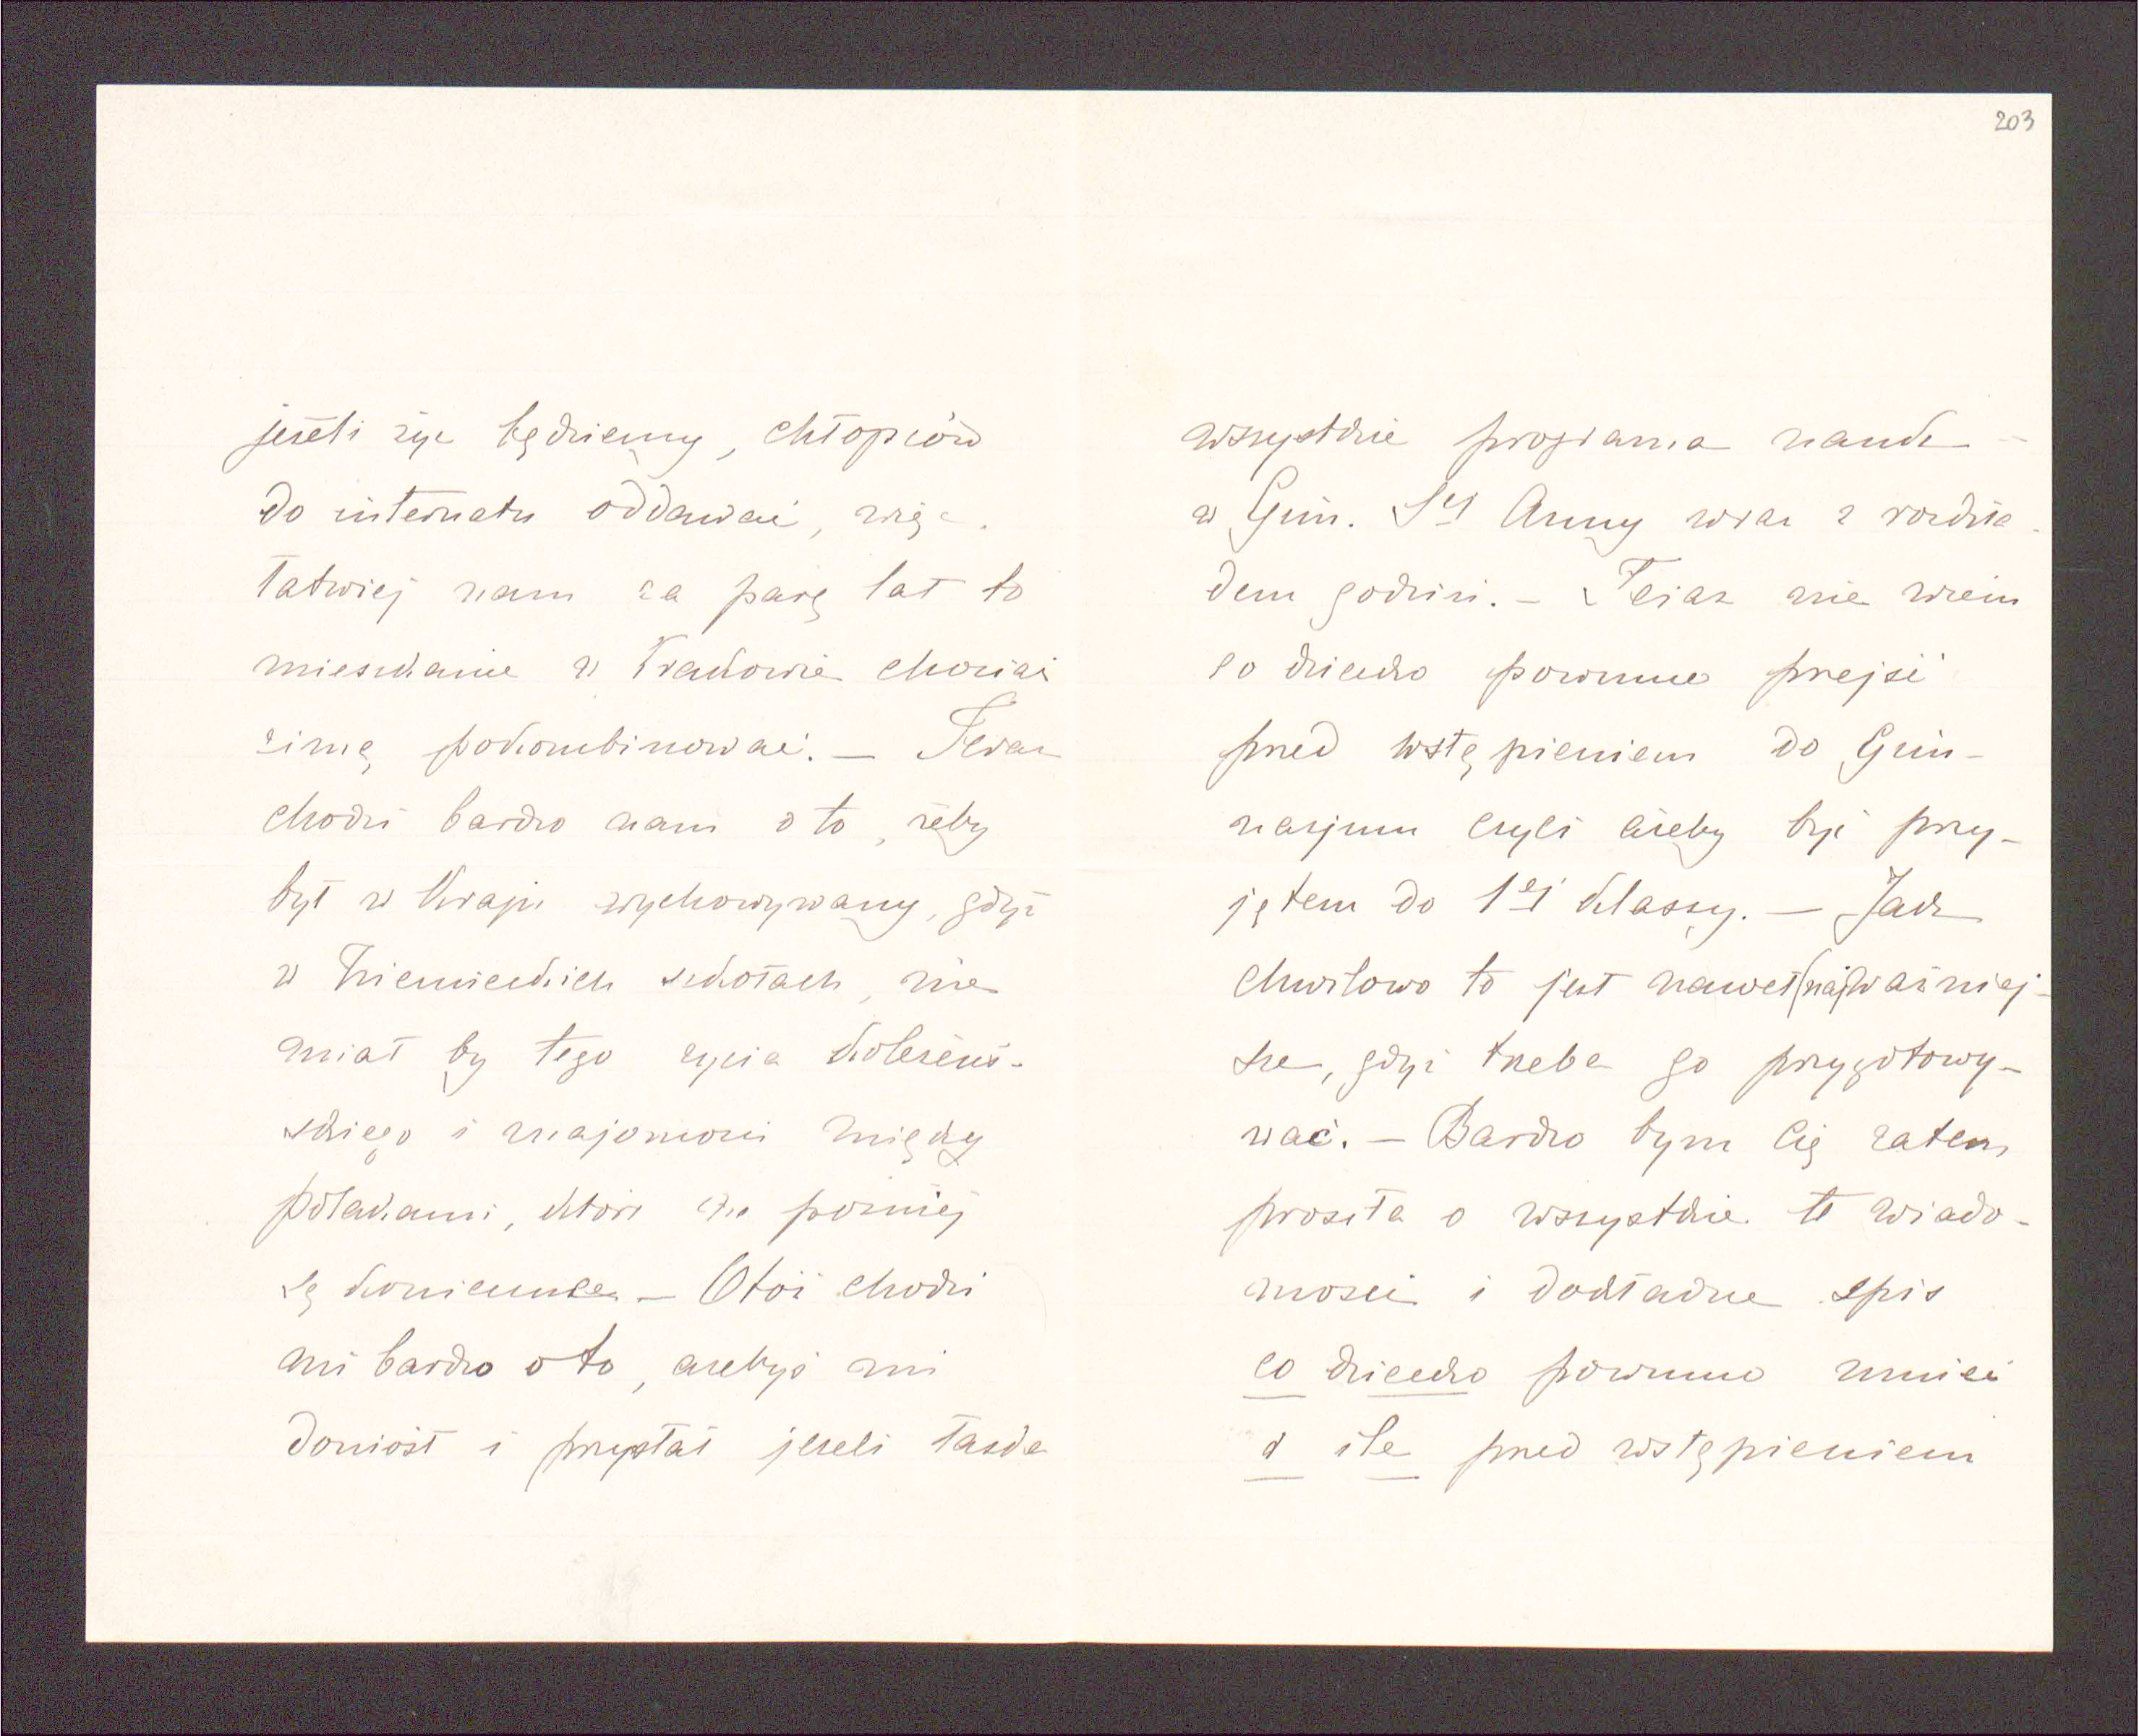 203
jeżeli żyć będziemy, chłopców
do internatu oddawać, więc
łatwiej nam za parę lat to
mieszkanie w Krakowie chociaż
zimę pokombinować. — Teraz
chodzi bardzo nam o to, żeby
był w Kraju wychowywany, gdyż
w Niemieckich szkołach, nie
miał by tego życia koleżeń-
skiego i znajomości między
polakami, które na później
są konieczne — Otóż chodzi
mi bardzo o to, ażebyś mi
doniósł i przysłał jeżeli łaska
wszystkie programa nauk
w Gim. Sej Anny wraz z rozkła-
dem godzin. — Teraz nie wiem
co dziecko powinno przejść
przed wstąpieniem do Gim-
nazjum czyli ażeby być przy-
jętem do 1ej klassy. — Jak
chwilowo to jest nawet (naj)ważniej-
sze, gdyż trzeba go przygotowy-
wać. — Bardzo bym Cię zatem
prosiła o wszystkie te wiado-
mości i dokładne spis
co dziecko powinno umieć
i ile przed wstąpieniem